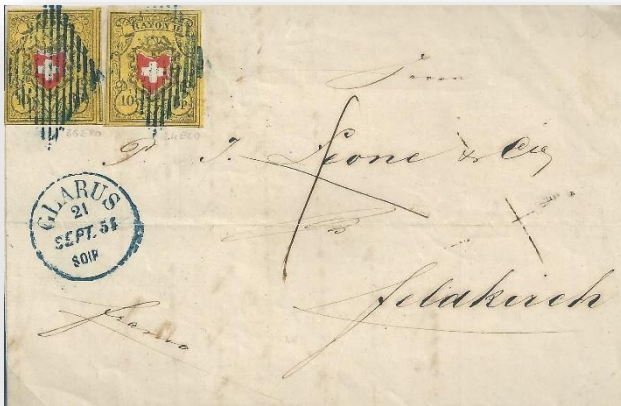 RAYON II
10
10
P. J. Leone & Cie
GLARUS
21
SEPT. 51
SOIR
Feldkirch
franco